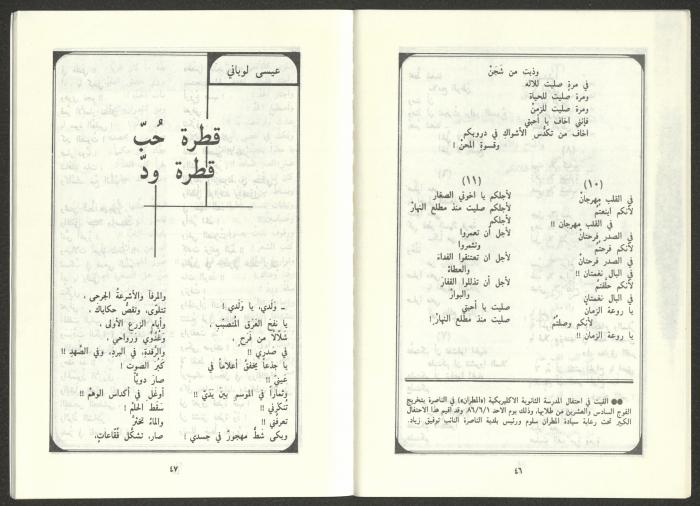 وذبت من شَجَنْ
في مرةٍ صليت للاله
ومرة صليت للحياة
ومرة صليت للزمنْ
فإنني اخاف يا أحبتي
اخاف من تكدُّس الأشواكِ في دروبكم
وقسوةِ المحنْ !
(١٠)
في القلب مهرجانْ
لأنكم أينعتمُ
في القلب مهرجان !!
في الصدر فرحتانْ
لأنكم فرحتُمُ
في الصدر فرحتانْ
في البال نغمتان !!
لأنكم حلَّقتمُ
في البال نغمتانِ
يا روعة الزمانْ
لأنكم وصلتُمُ
يا روعة الزمان !!
(١١)
لأجلكم يا اخوتي الصغار
لأجلكم صليت منذ مطلع النهارْ
لأجلكم
لأجل أن تعمروا
وتثمروا
لأجل ان تعتنقوا الفداءَ
والعطاءْ
لأجل أن تذللوا القفارَ
والبوارْ
صليت يا أحبتي
صليت منذ مطلع النهارْ !
●● القيت في احتفال المدرسة الثانوية الاكليريكية («المطران») في الناصرة بتخريج
الفوج السادس والعشرين من طلابها، وذلك يوم الاحد ٨٦/٦/١ وقد اقيم هذا الاحتفال
الكبير تحت رعاية سيادة المطران سلوم ورئيس بلدية الناصرة النائب توفيق زياد.
٤٦
عيسى لوباني
قطرة حُبّ
قطرة ودّ
ـ وَلَدي، يا وَلَدي !
يا نفحَ العَرَقِ المُتصبِّبِ ،
شَلّالاً من فَرح ،
في صدري !!
يا جذعاً يخفقُ أعلاماً في
عَينيَّ !!
وثماراً في الموسم بينَ يَديَّ !!
تنكرني !!
تعرفُني !!
وبكى شطٌّ مهجورٌ في جسدي !
والمرفأ والأشرعةُ الجرحى ،
تتلوّى، وتقصُّ حكاياك ،
وأيامَ الزرعِ الأولى ،
وغُدُوّي وَرَواحي ،
والرَّقدةِ، في البردِ، وفي الصَّهدِ !!
كَبُرَ الصوت !
صار دوياً
أوغلَ في أكداسِ الوهمْ !!
سَقَط الحلم !
والماءُ تخثّرَ
صار، تشكّل فُقّاعاتٍ،
٤٧